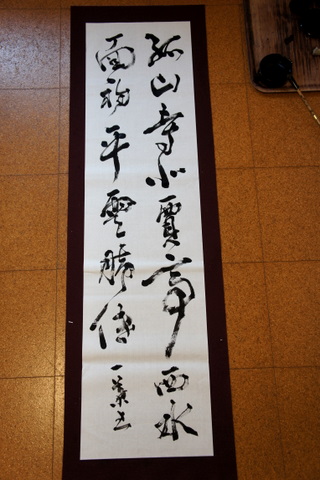 孤山寺北賈亭西水
面初平雲脚低
一葉書